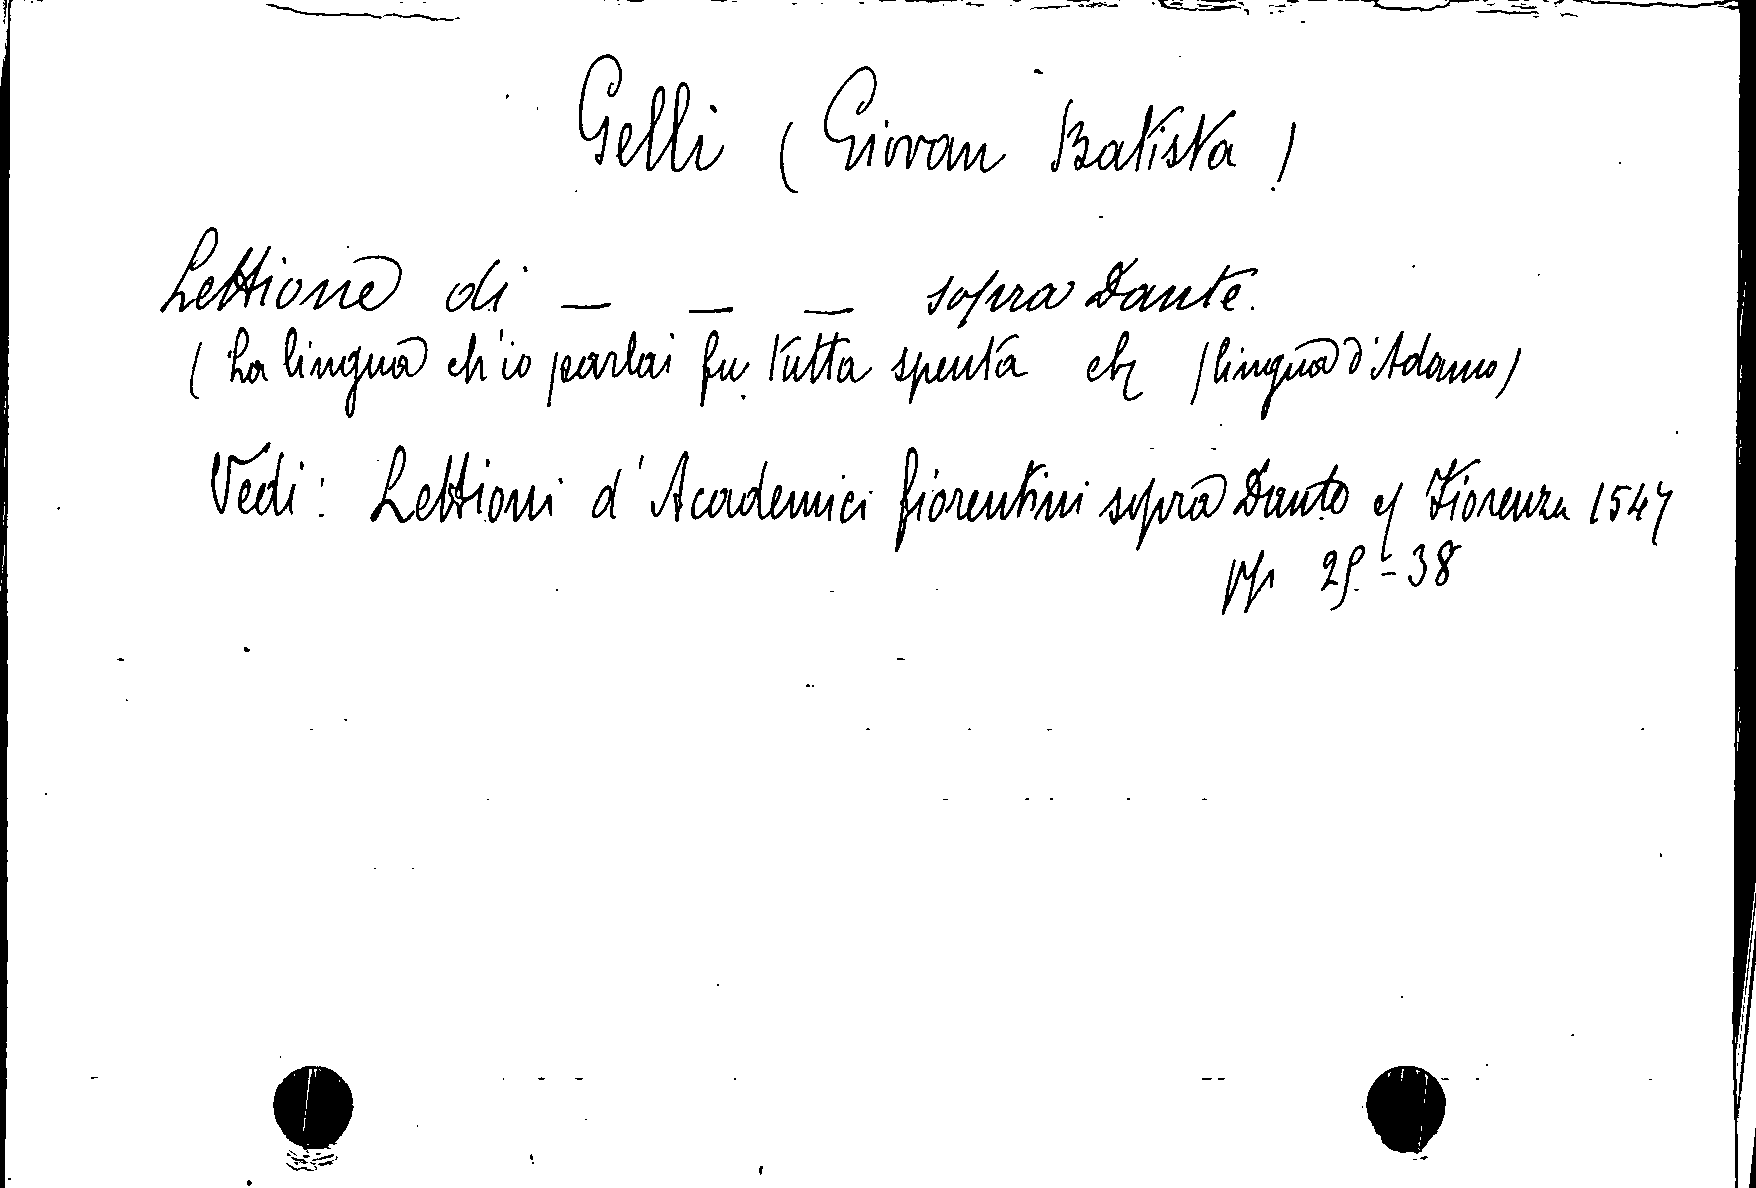 Gelli (Giovan Batista)
Lettione di _ _ _ sopra Dante.
(La lingua ch'io parlai fu tutta spenta etc (lingua d'Adamo)
Vedi: Lettioni d'Academici fiorentini sopra Dante Fiorenza 1547
pp 29-38